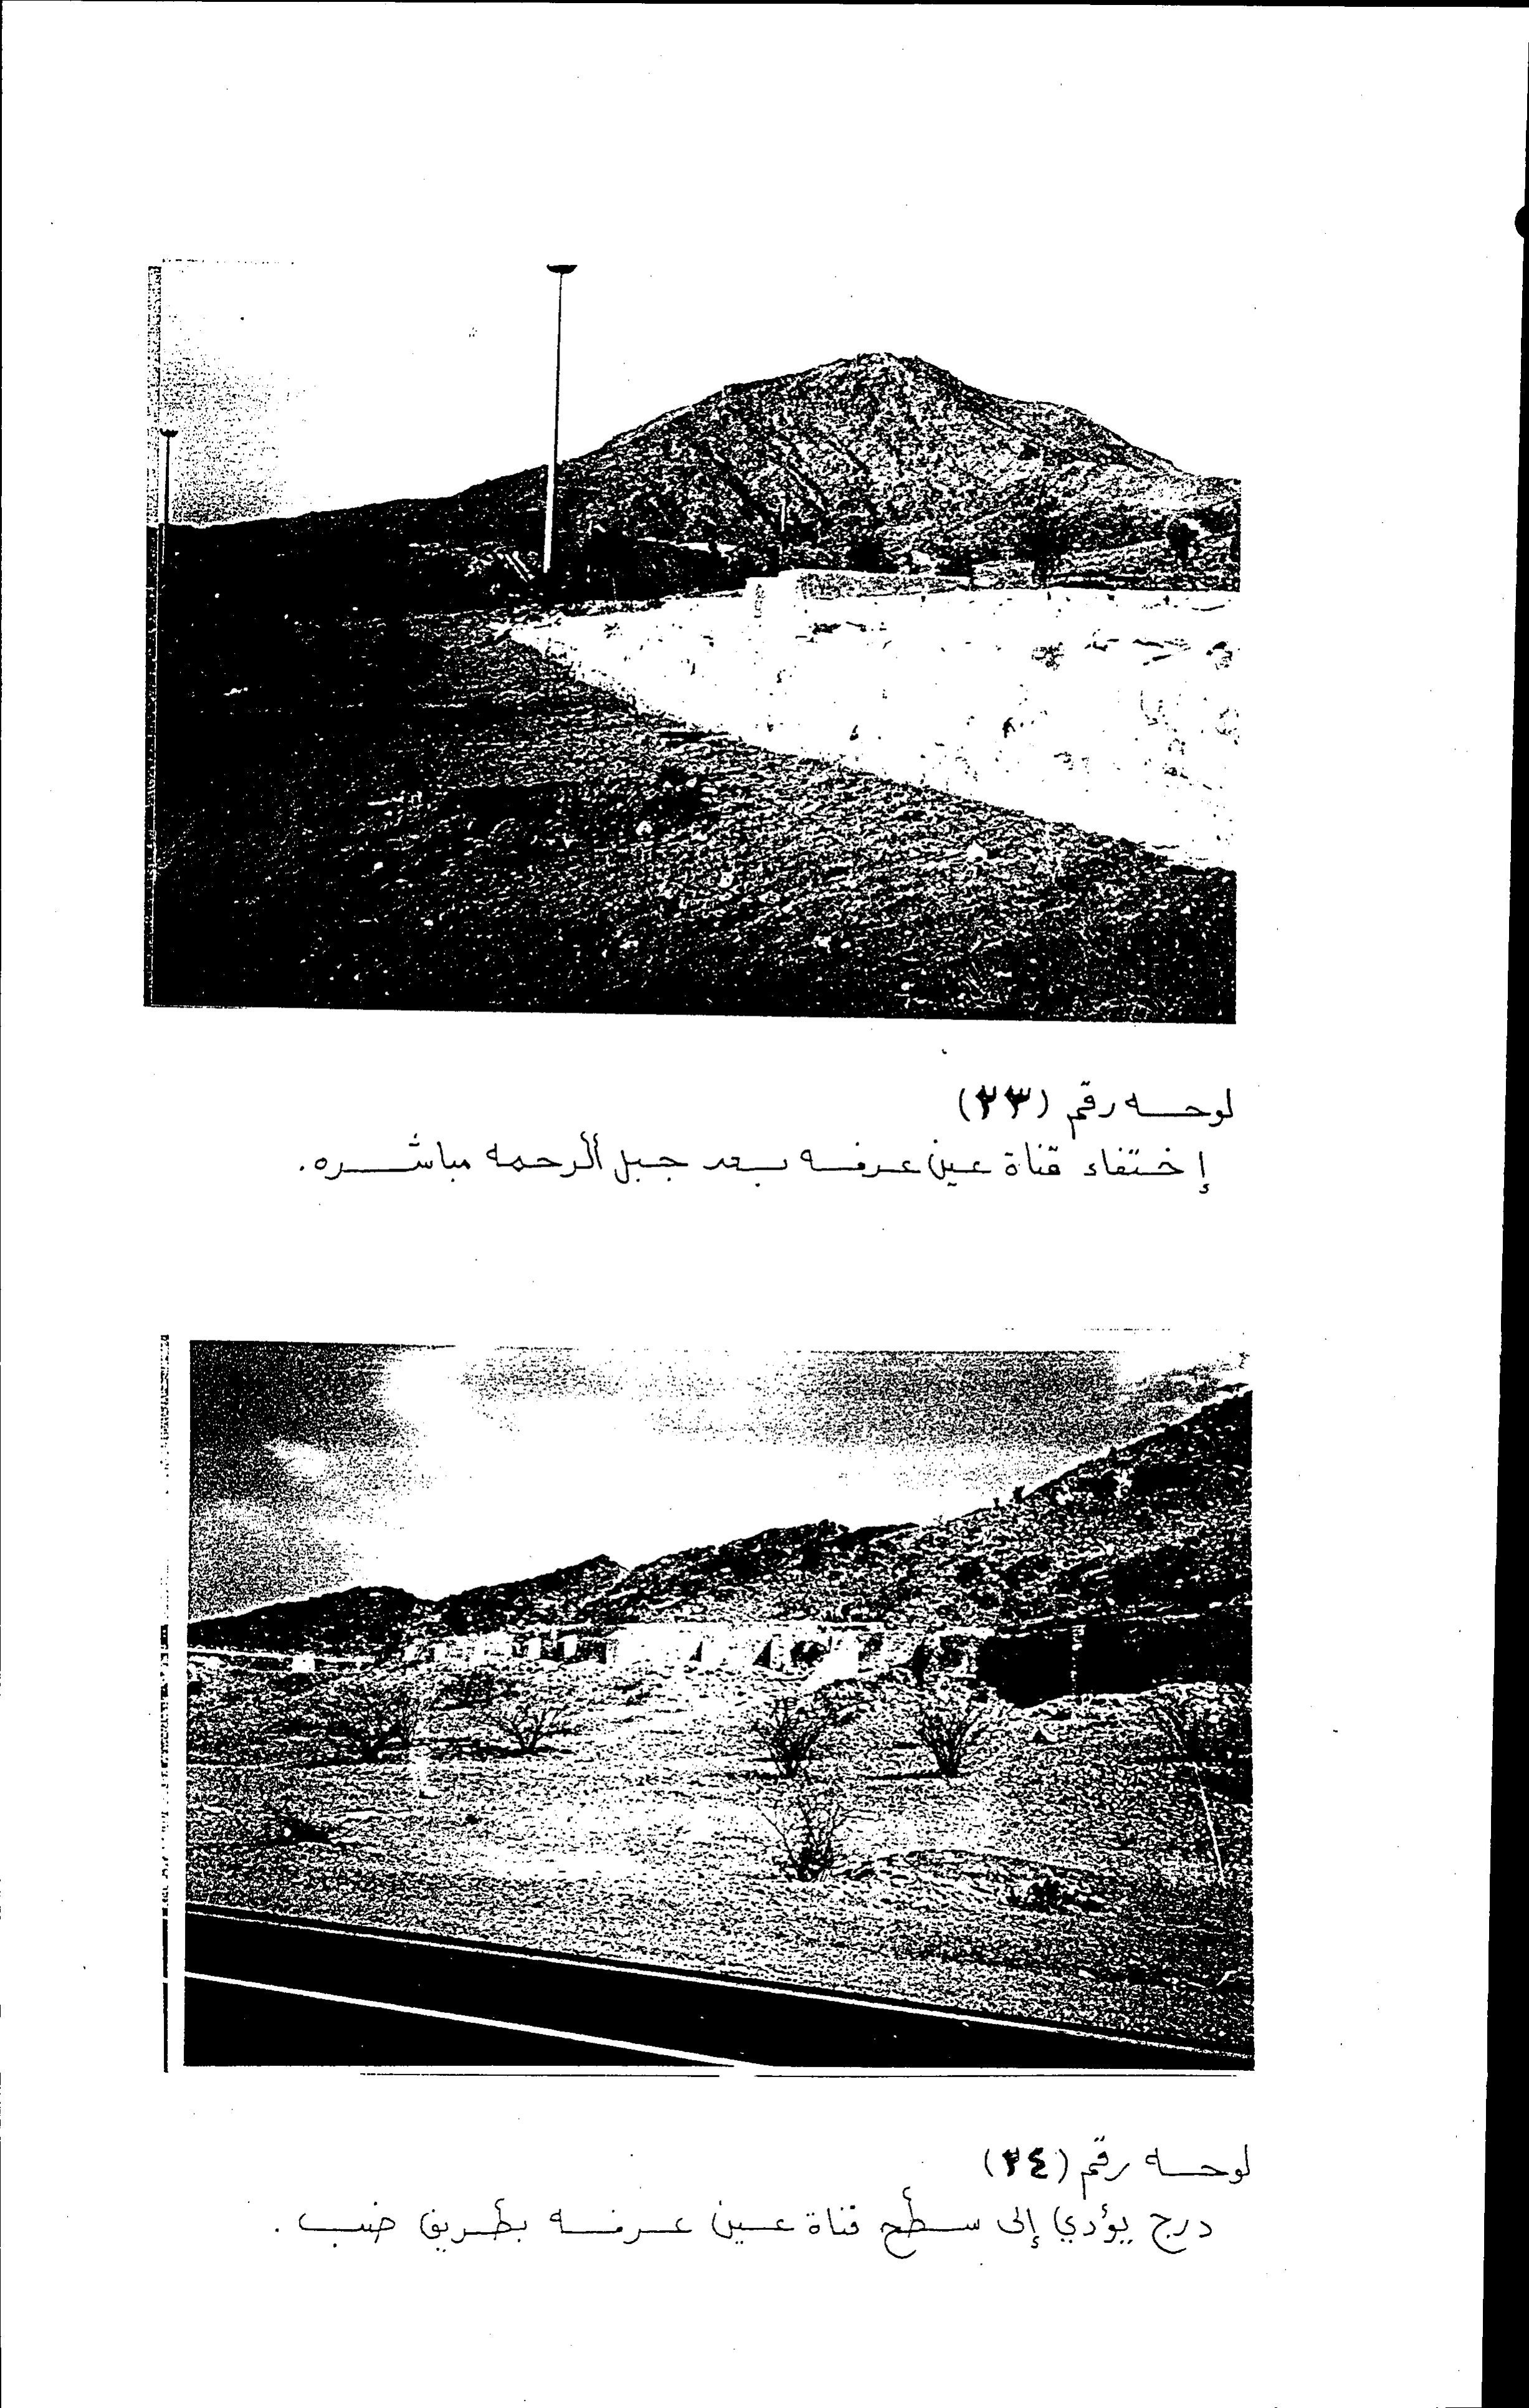 لوحه رقم (٢٣)
إختفاء قناة عين عرفه بعد جبل الرحمه مباشره.
لوحه رقم (٢٤)
درج يؤدي إلى سطح قناة عين عرفه بطريق ضب .